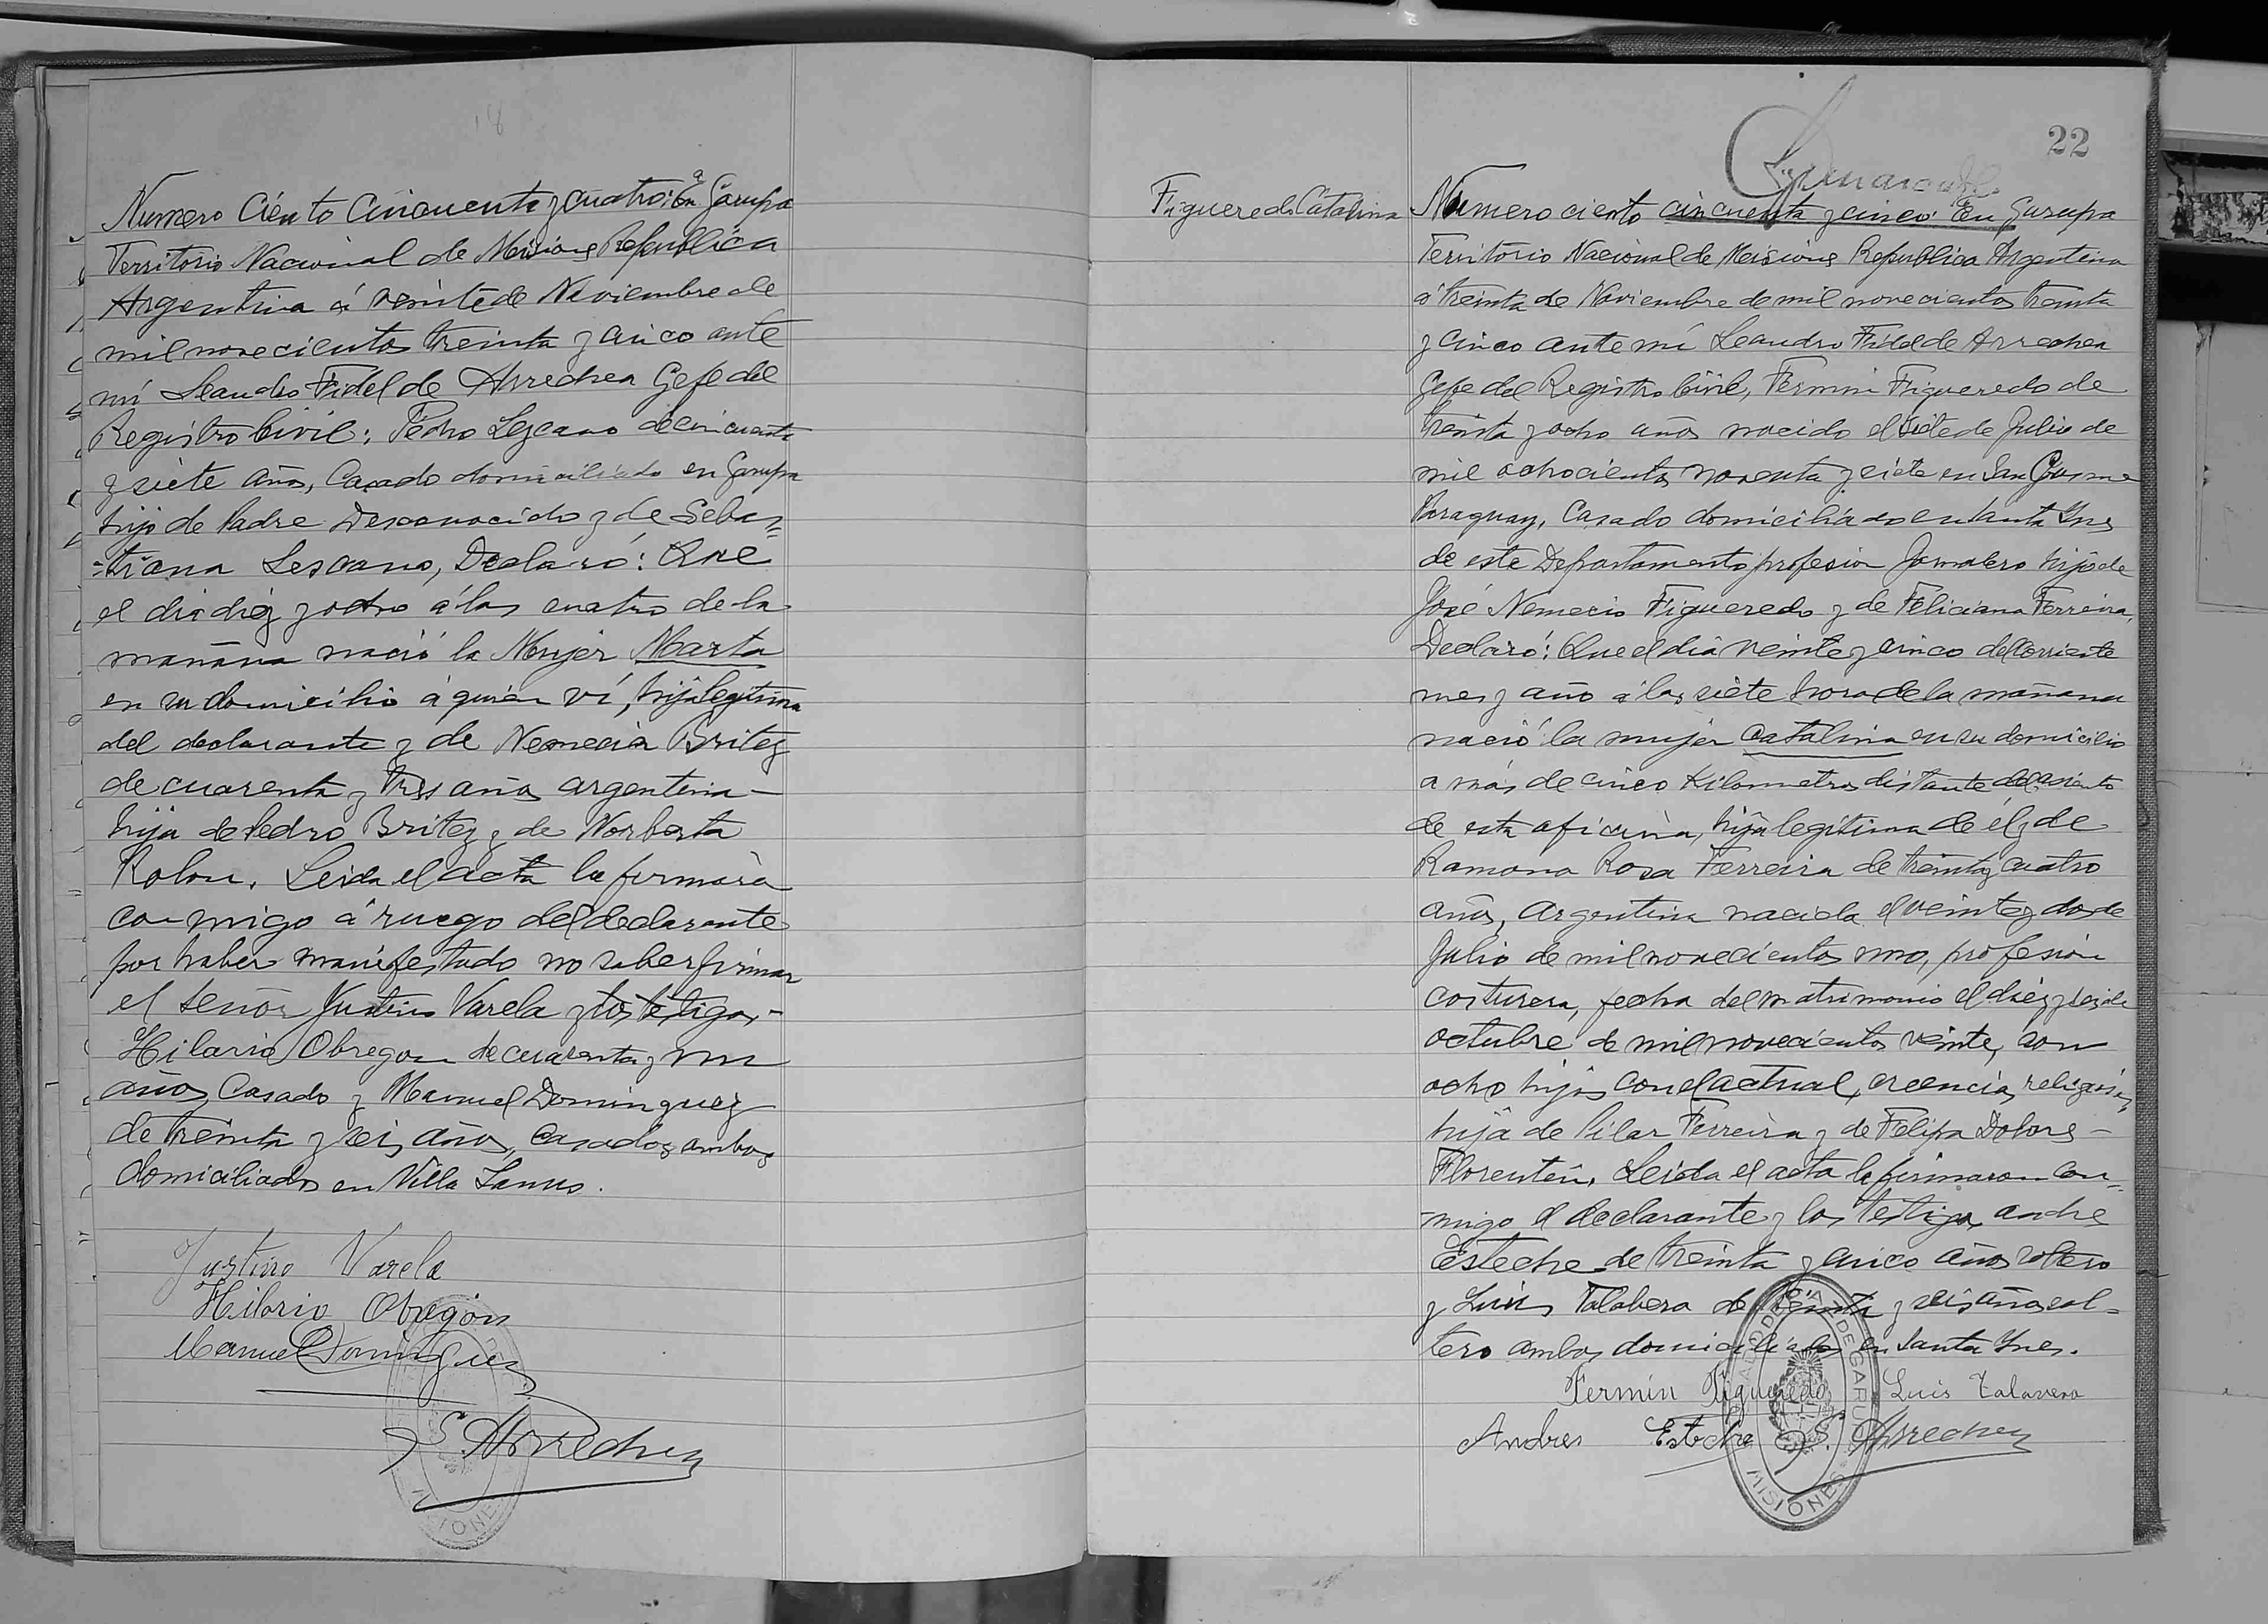 18
Numero Ciento Cincuenta y cuatro: En Garupa
Territorio Nacional de Misiones Republica
Argentina á veinte de Noviembre de
mil novecientos treinta y cinco ante
mí Leandro Fidel de Arrechea Gefe del
Registro Civil; Pedro Lezcano de cincuenta
y siete años, Casado domiciliado en Garupa
hijo de Padre Desconocido y de Sebas=
=tiana Lescano, Declaró: Que
el dia diez y ocho á las cuatro de la
mañana nació la Mujer Marta
en su domicilio á quien ví, hija legitima
del declarante y de Nemecia Britez
de cuarenta y tres años argentina —
hija de Pedro Britez y de Norberta
Rolon. Leida el acta la firmará
conmigo á ruego del declarante
por haber manifestado no saber firmar
el señor Justino Varela y los testigos -
Hilario Obregon de cuarenta y un
años, Casado y Manuel Dominguez
de treinta y seis años, Casados ambos
domiciliados en Villa Lanus.
Justino Varela
Hilario Obregón
Manuel Dominguez
L. F. Arrechea
22
Figueredo Catalina
Numero ciento cincuenta y cinco: En Garupa
Territorio Nacional de Misiones Republica Argentina
á treinta de Noviembre de mil novecientos treinta
y cinco ante mí Leandro Fidel de Arrechea
Gefe del Registro Civil, Fermin Figueredo de
treinta y ocho años nacido el siete de Julio de
mil ochocientos noventa y siete en San Cosme
Paraguay, Casado domiciliado en Santa Ynes
de este Departamento profesion Jornalero hijo de
José Nemecio Figueredo y de Feliciana Ferreira,
Declaró: Que el día veinte y cinco del corriente
mes y año á las siete hora de la mañana
nació la mujer Catalina en su domicilio
a más de cinco Kilometros distante del asiento
de esta oficina, hija legítima de él y de
Ramona Rosa Ferreira de treinta y cuatro
años, Argentina nacida el veinte y dos de
Julio de mil novecientos uno, profesión
costurera, fecha del matrimonio el diez y seis de
octubre de mil novecientos veinte, son
ocho hijos con el actual,
hija de Pilar Ferreira y de Felipa Dolores —
Florentín. Leida el acta la firmaron con=
=migo el declarante y los testigos Andre
Esteche de treinta y cinco años soltero
y Luis Talabera de treinta y seis años sol=
tero ambos domiciliados en Santa Ynes.
Fermín Figueredo Luis Talavera
Andres Esteche L. F. Arrechea
DE GARUPA
MISIONES